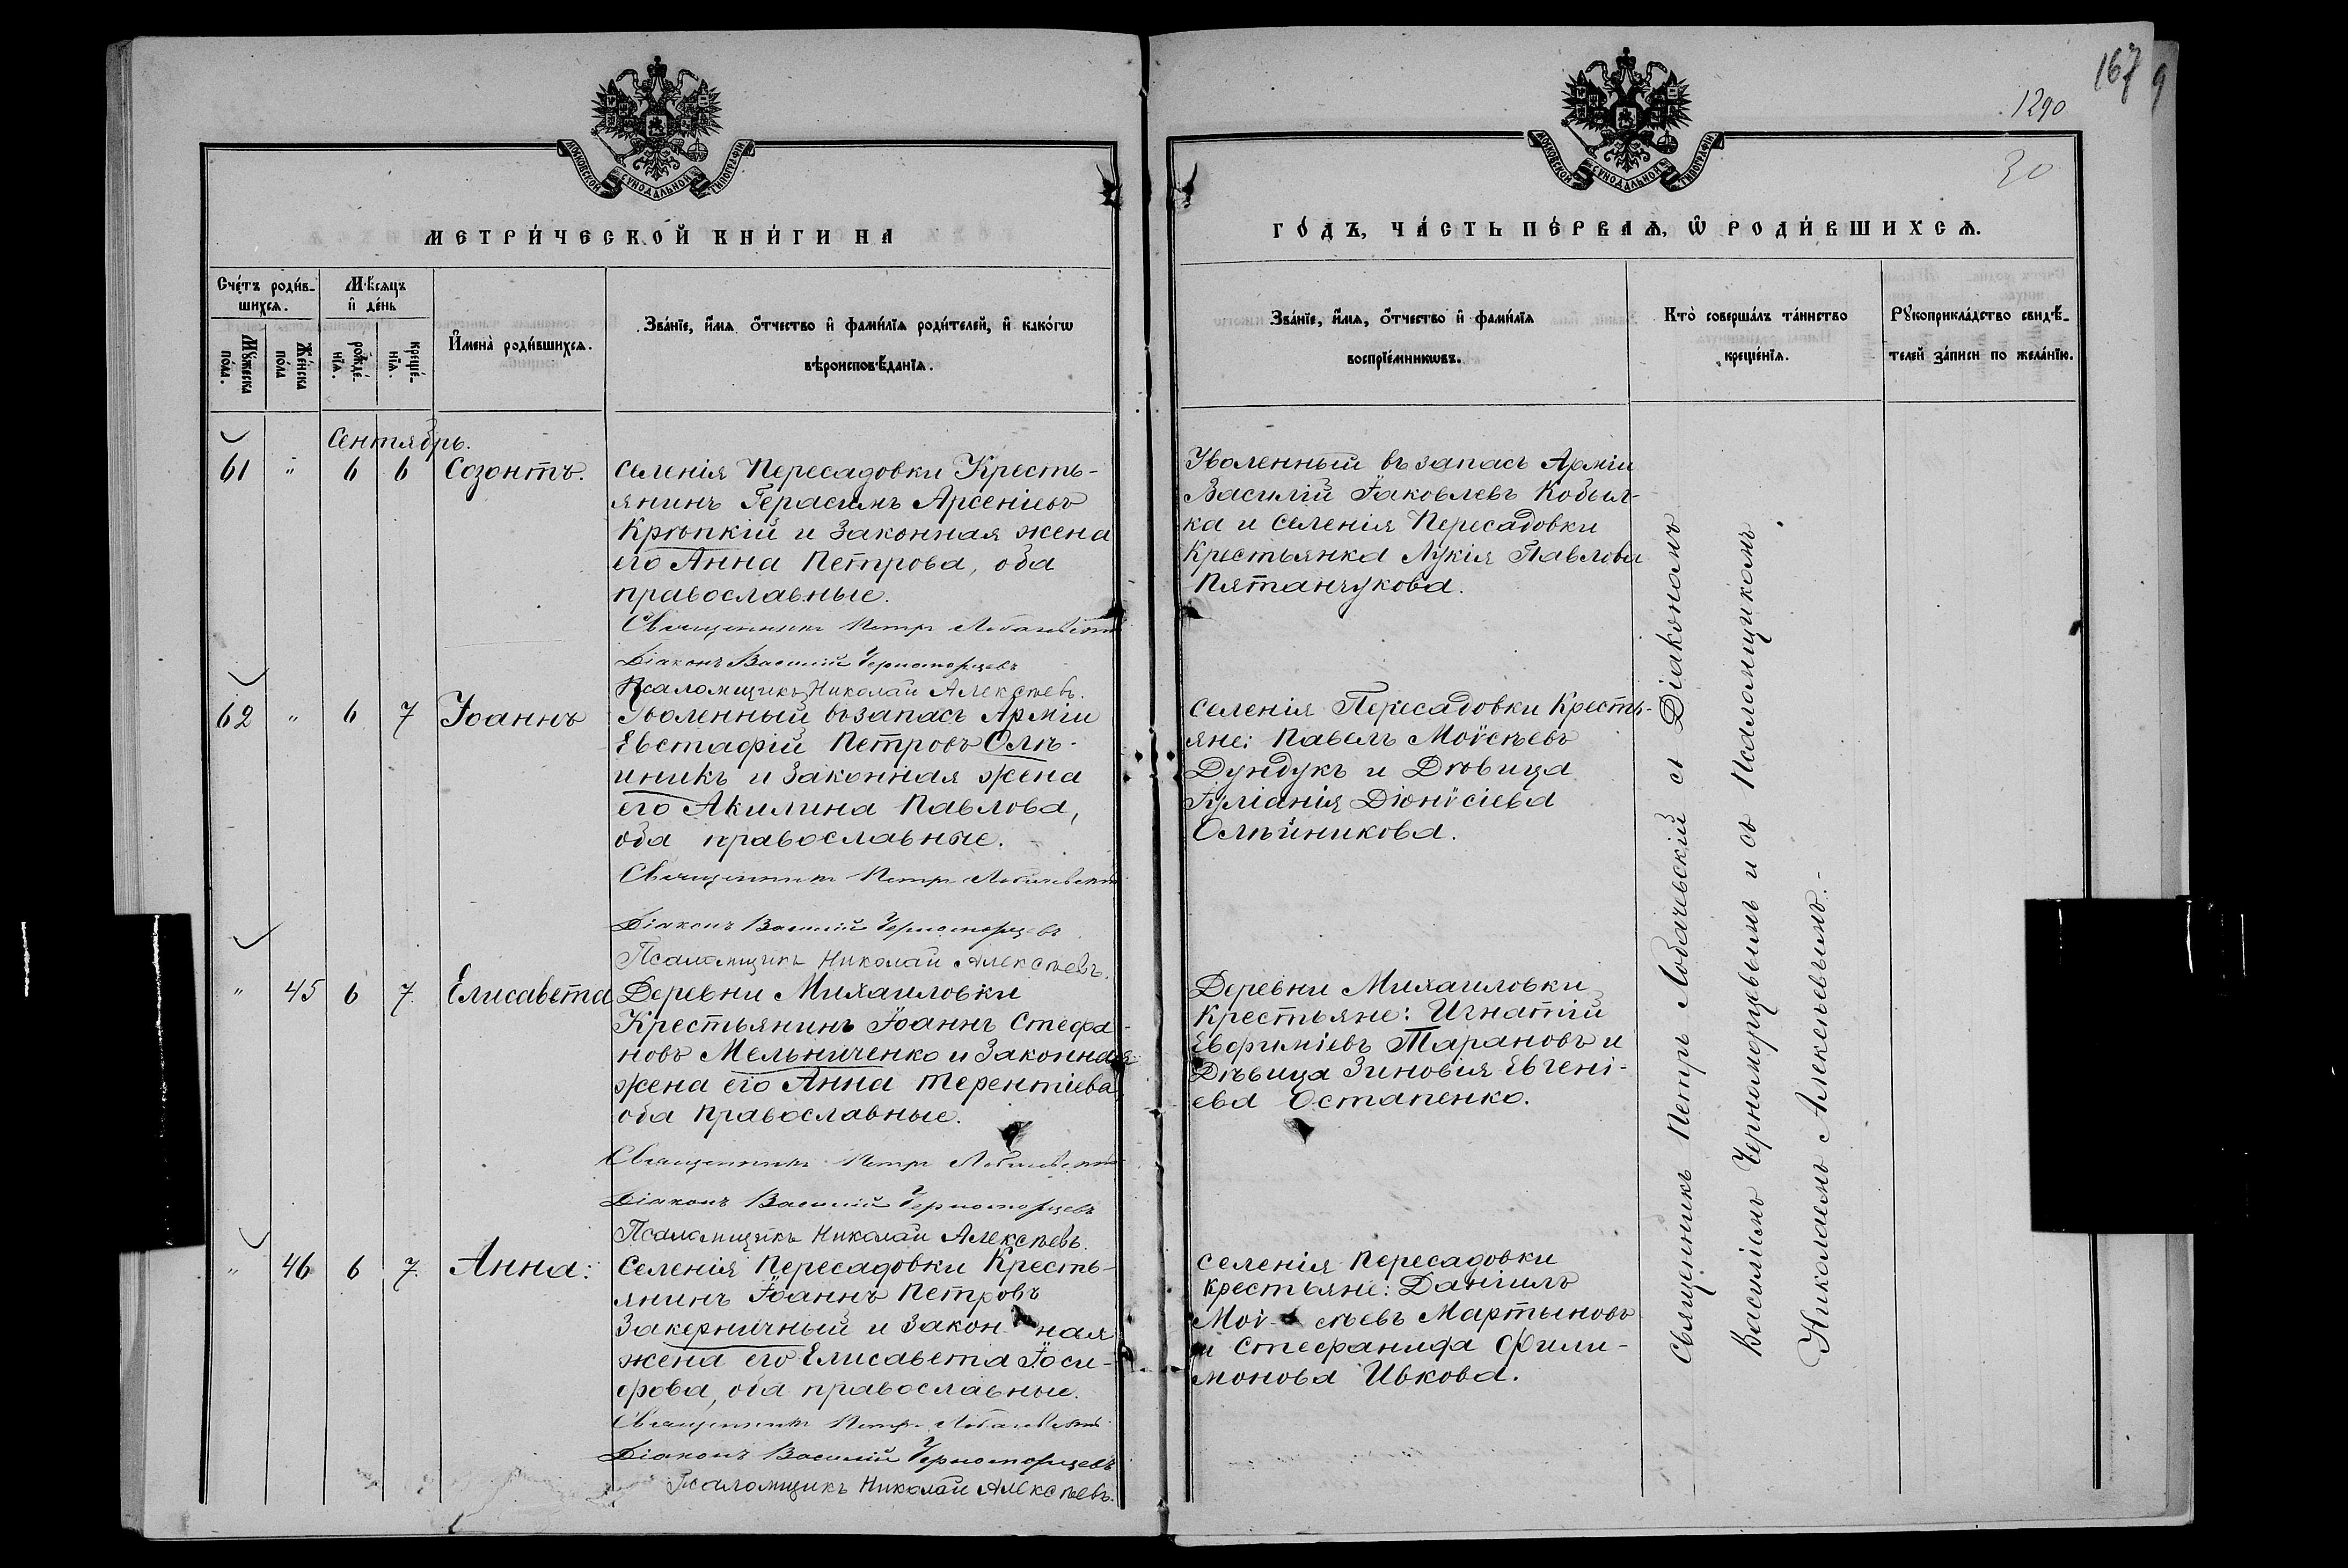 167 9
1290
30
МОСКОВСКОЙ СѴНОДАЛЬНОЙ ТИПОГРАФІИ
МЕТРИ́ЧЕСКОЙ КНИ́ГИ НА
Сче́тъ роди́в-
шихсѧ.
Мꙋ́жеска
по́ла.
Же́нска
по́ла
Мѣ́сѧцъ
и҆ де́нь
рожде́-
нїѧ.
креще́-
нїѧ.
И҆мена̀ роди́вшихсѧ.
Зва́нїе, и҆́мѧ ѻ҆́тчество и҆ фами́лїѧ роди́телей, и҆ како́гѡ
вѣроисповѣ́данїѧ.
Сентябрь.
61 " 6 6 Созонтъ.
Селенія Пересадовки Кресть-
янинъ Герасимъ Арсеніевъ
Крѣпкій и законная жена
его Анна Петрова, оба
православные.
Священникъ Петръ Лобачевскій
Діаконъ Василій Черноморцевъ
Псаломщикъ Николай Алексѣевъ.
62 " 6 7 Іоаннъ
Уволенный въ запасъ Арміи
Евстафій Петровъ Олѣ-
йникъ и законная жена
его Акилина Павлова,
оба православные.
Священникъ Петръ Лобачевскій
Діаконъ Василій Черноморцевъ
Псаломщикъ Николай Алексѣевъ.
" 45 6 7. Елисавета
Деревни Михаиловки
Крестьянинъ Іоаннъ Стефа-
новъ Мельниченко и законная
жена его Анна Терентіева,
оба православные.
Священникъ Петръ Лобачевскій
Діаконъ Василій Черноморцевъ
Псаломщикъ Николай Алексѣевъ.
" 46 6 7. Анна:
Селенія Пересадовки Кресть-
янинъ Іоаннъ Петровъ
Закерничный и закон-ная
жена его Елисавета Іоси-
фова, оба православные.
Священникъ Петръ Лобачевскій
Діаконъ Василій Черноморцевъ
Псаломщикъ Николай Алексѣевъ.
МОСКОВСКОЙ СѴНОДАЛЬНОЙ ТИПОГРАФІИ
ГО́ДЪ, ЧА́СТЬ ПЕ́РВАѦ, Ѽ РОДИ́ВШИХСѦ.
Зва́нїе, и҆́мѧ, ѻ҆́тчество и҆ фами́лїѧ
воспрїе́мникѡвъ.
Кто̀ соверша́лъ та́инство
креще́нїѧ.
Рꙋкоприкла́дство свидѣ́-
телей за́писи по жела́нїю.
Уволенный въ запасъ Арміи
Василій Іаковлевъ Кобыл-
ка и Селенія Пересадовки
Крестьянка Лукія Павлова
Пятанчукова.
Селенія Пересадовки Кресть-
яне: Павелъ Моѵсѣевъ
Дундукъ и Дѣвица
Іуліанія Діонѵсіева
Олѣйникова.
Деревни Михаиловки
Крестьяне: Игнатій
Евфиміевъ Тарановъ и
Дѣвица Зиновія Евгені-
ева Остапенко.
Селенія Пересадовки
Крестьяне: Даніилъ
Моѵ-сѣевъ Мартыновъ
и Стефанида Фили-
монова Ивкова.
Священникъ Петръ Лобачевскій съ Діакономъ
Василіемъ Черноморцевымъ и съ Псаломщикомъ
Николаемъ Алексѣевымъ.-